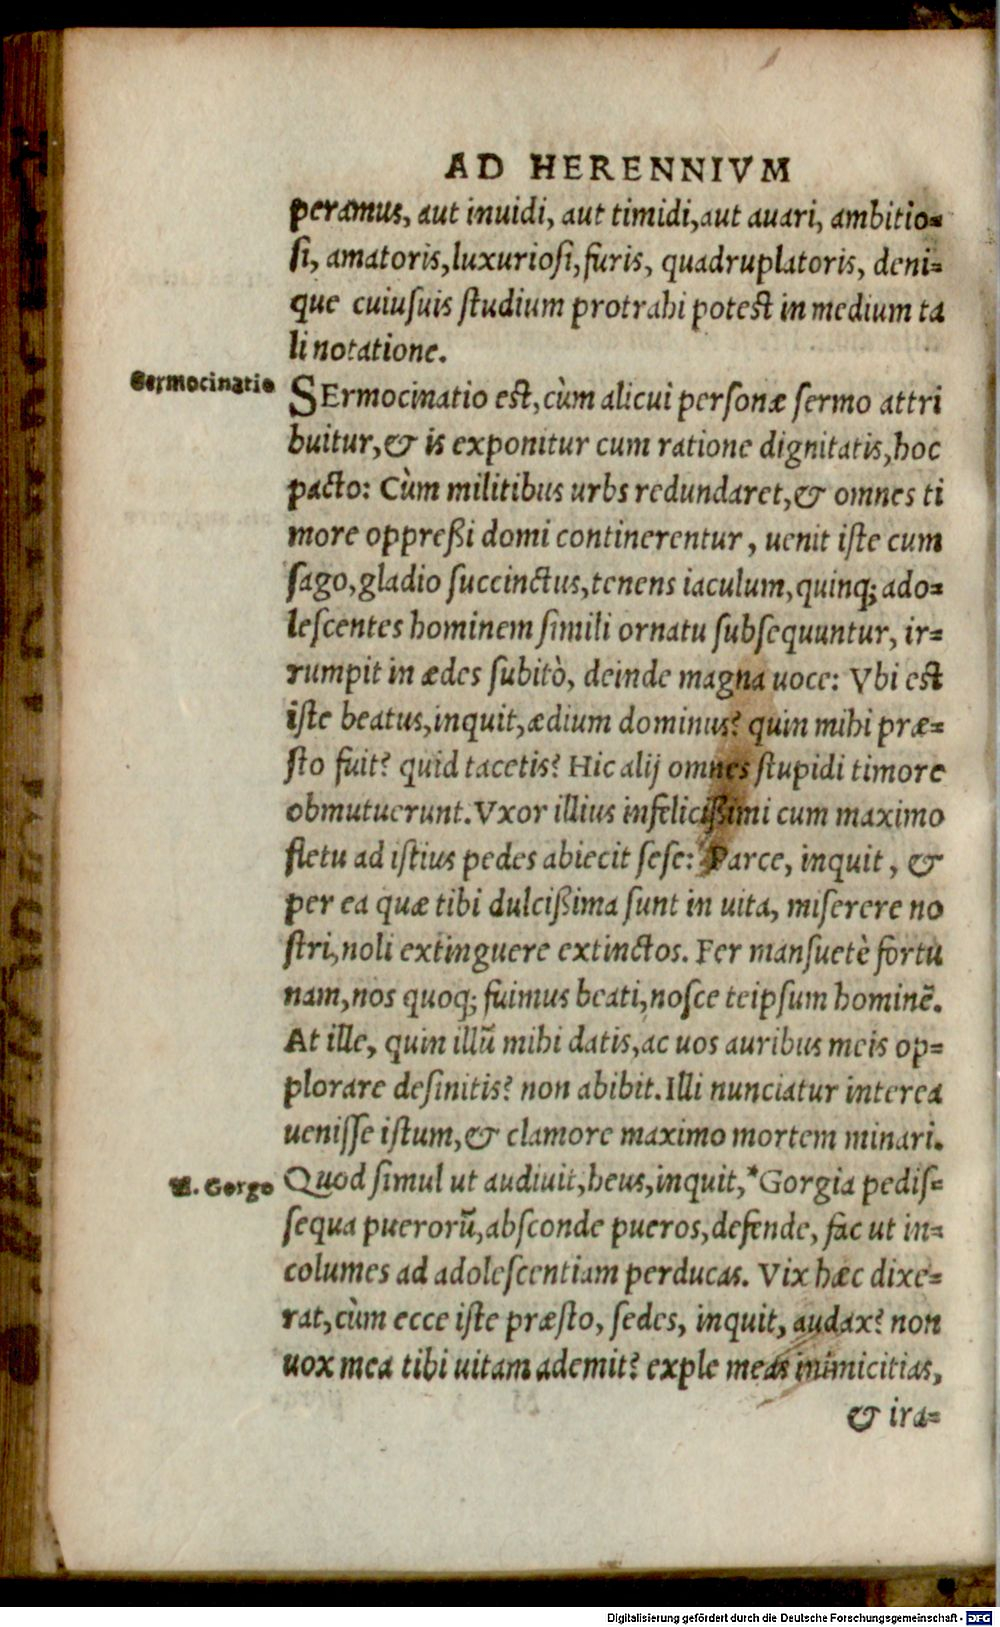 AD HERENNIVM
peramus, aut inuidi, aut timidi, aut auari, ambitio=
si, amatoris, luxuriosi, furis, quadruplatoris, deni=
que cuiusuis studium protrahi potest in medium ta
li notatione.
Sermocinatio
SErmocinatio est, cùm alicui personæ sermo attri
buitur, & is exponitur cum ratione dignitatis, hoc
pacto: Cùm militibus urbs redundaret, & omnes ti
more oppreßi domi continerentur, uenit iste cum
sago, gladio succinctus, tenens iaculum, quinq; ado=
lescentes hominem simili ornatu subsequuntur, ir=
rumpit in ædes subitò, deinde magna uoce: Vbi est
iste beatus, inquit, ædium dominus? quin mihi præ=
sto fuit? quid tacetis? Hic alij omnes stupidi timore
obmutuerunt. Vxor illius infelicißimi cum maximo
fletu ad istius pedes abiecit sese: Parce, inquit, &
per ea quæ tibi dulcißima sunt in uita, miserere no
stri, noli extinguere extinctos. Fer mansuetè fortu
nam, nos quoq; fuimus beati, nosce teipsum hominē.
At ille, quin illū mihi datis, ac uos auribus meis op=
plorare desinitis? non abibit. Illi nunciatur interea
uenisse istum, & clamore maximo mortem minari.
Quod simul ut audiuit, heus, inquit, *Gorgia pedis=
Gorge
sequa puerorū, absconde pueros, defende, fac ut in=
columes ad adolescentiam perducas. Vix hæc dixe=
rat, cùm ecce iste præsto, sedes, inquit, audax? non
uox mea tibi uitam ademit? exple meas inimicitias,
& ira=
Digitalisierung gefördert durch die Deutsche Forschungsgemeinschaft - DFG